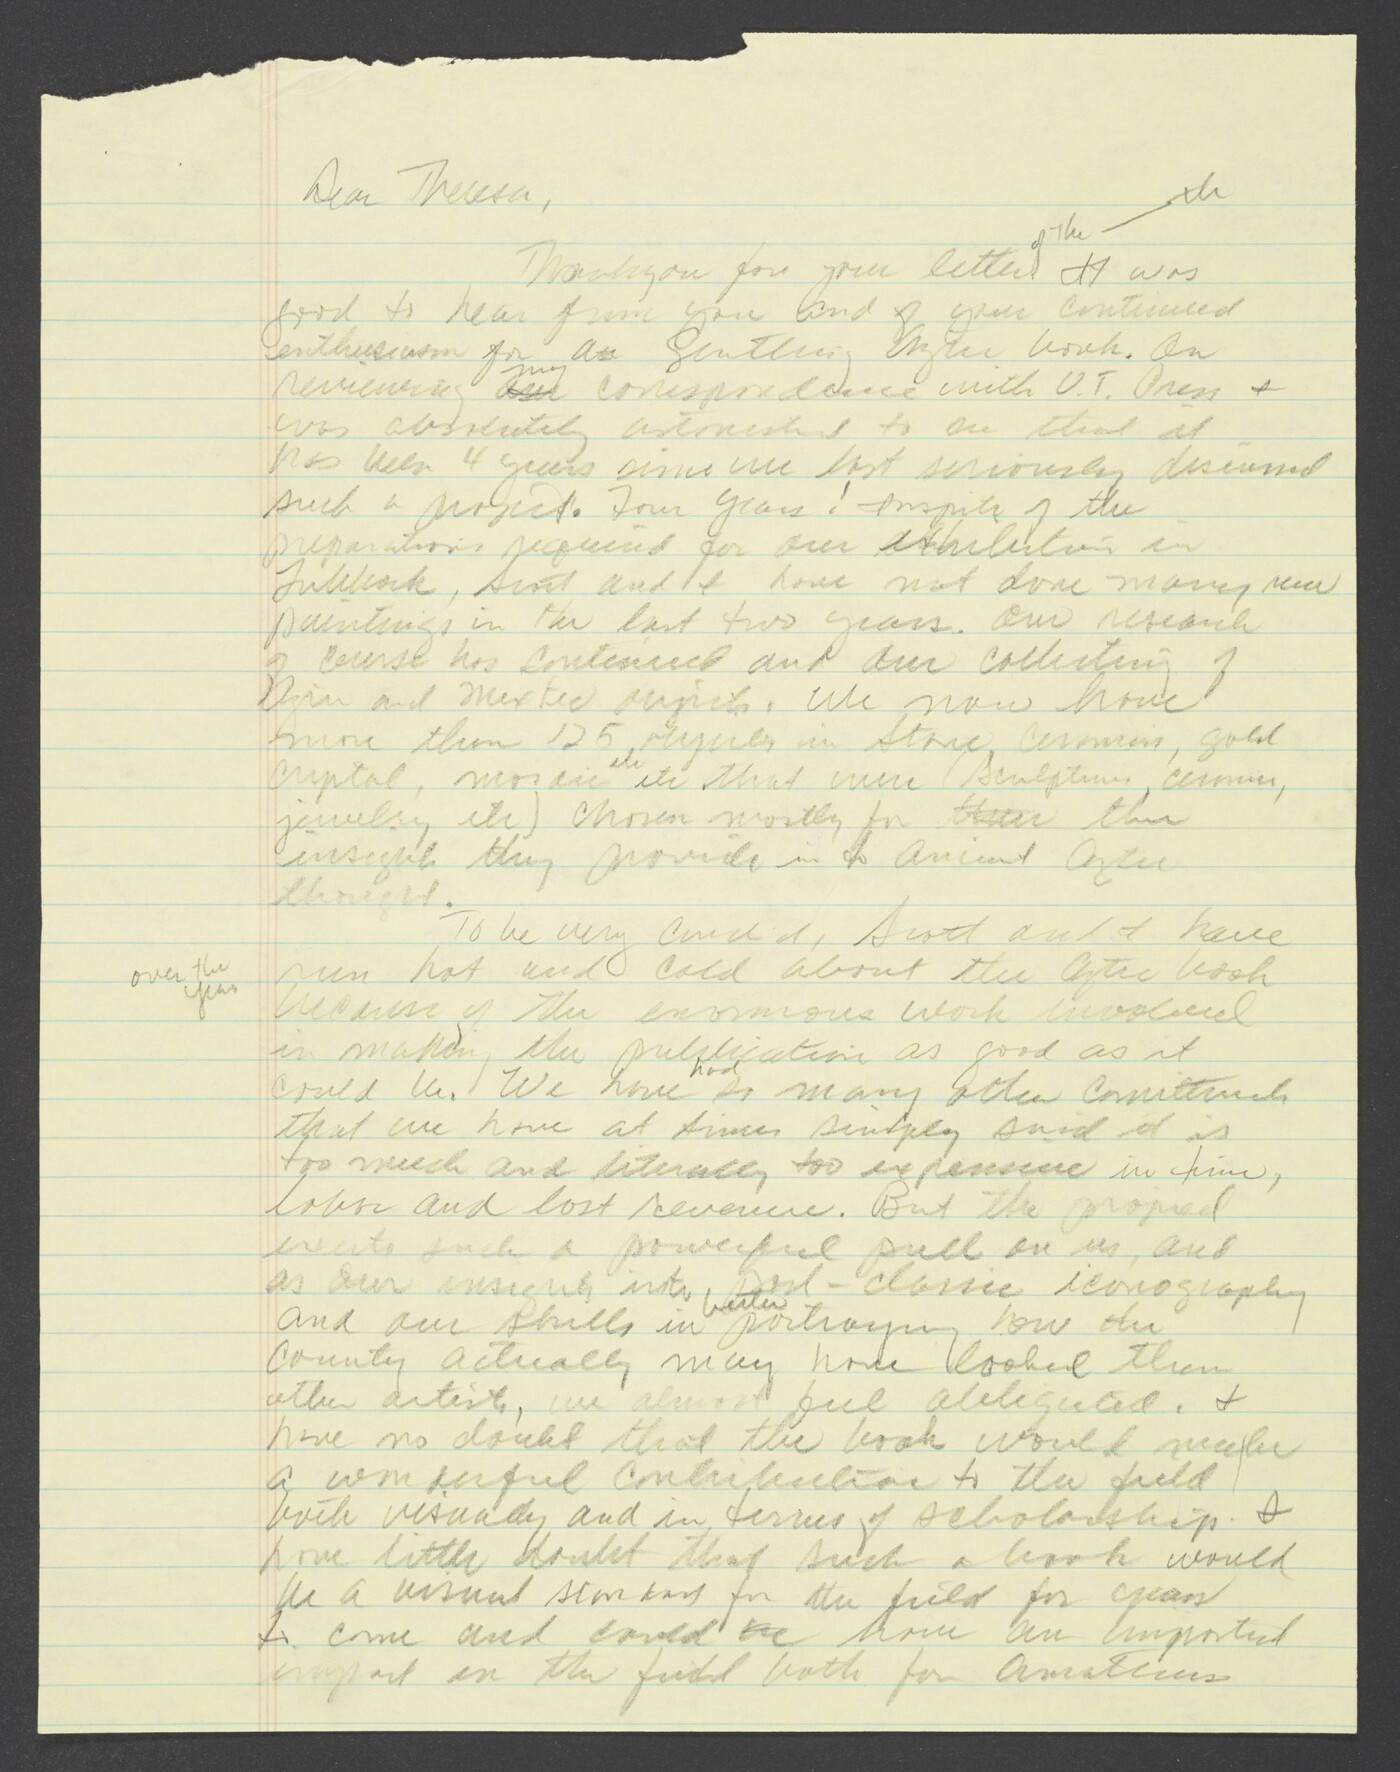 Dear Theresa,
of the
Thankyou for your letter It was
good to hear from you and of your continued
enthusiasm for a Gentling Aztec book. On
my
reviewing our correspondence with U.T. Press I
was absolutely astonished to see that it
has been 4 years since we last seriously discussed
such a project. Four years! Inspite of the
preparations required for our exhibition in
Lubbock, Scott and I have not done many new
paintings in the last two years. Our research
of course has continued and our collecting of
and Mixtec objects. We now have
more than 125 objects in stone, ceramic, gold
crystal, mosaic etc that were (sculptures, ceramics,
etc
jewelry etc) chosen mostly for the
insight they provide in to Ancient Aztec
thought.
To be very candid, Scott and I have
over the years
run hot and cold about the Aztec book
because of the enormous work involved
in making the publication as good as it
had
could be. We have so many other comittments
that we have at times simply said it is
too much and literally too expensive in time,
labor and lost revenue. But the project
exerts such a powerful pull on us, and
as our insights into post-classic iconography
better
and our skills in portraying how the
County actually may have looked then
other artists, we almost feel obligated. I
have no doubt that the book would make
a wonderful contribution to the field
both visually and in terms of scholarship. I
have little doubt that such a book would
be a visual standard for the field for years
to come and could be have an important
impact in the field both for amateurs